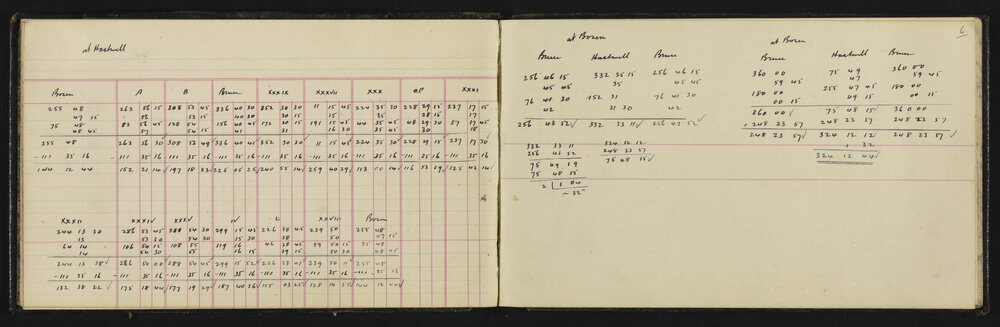 at Hartwell
Bozen A B Bruce XXXIX XXXVII XXX XXXI
255 48 263 56 15 308 53 45 336 40 30 352 30 30 11 15 45 224 35 30 228 29 15 237 17 15
47 15 56 53 15 40 30 30 15 15 35 28 15 17
75 48 83 56 45 128 54 156 40 45 172 30 15 191 15 45 44 35 45 48 29 30 57 17 45
48 45 57 54 15 41 31 16 30 35 45 30 18
255 48 263 56 20 308 53 49 336 40 41 352 30 30 11 15 45 224 35 30 228 29 15 237 17 30
-111 35 16 -111 35 16 -111 35 16 -111 35 16 -111 35 16 -111 35 16 -111 35 16 -111 35 16 -111 35 16
144 12 44 152 21 14 197 18 33 225 05 25 240 55 14 259 40 29 113 00 14 116 53 59 125 42 14
XXXII XXXIV XXXV IV XXVIII Bozen
244 13 30 286 53 45 288 54 30 299 15 45 226 38 45 239 50 255 48
13 53 30 54 30 15 30 38 50 47 15
64 14 106 54 15 108 55 119 16 46 38 45 59 50 15 75 48
54 30 55 16 15 39 15 50 30 48 45
244 13 38 286 54 00 288 54 45 299 15 52 226 38 41 239 50 11 255 48
-111 35 16 -111 35 16 -111 35 16 -111 35 16 -111 35 16 -111 35 16 -111 35 16
132 38 22 175 18 44 177 19 29 187 40 36 115 03 25 128 14 55 144 12 44
6
at Bozen
Bruce Hartwell Bruce
256 46 15 332 35 15 256 46 15
45 45 35 45 45
76 41 30 152 31 76 41 30
42 31 30 42
256 43 52 332 33 11 256 43 52
332 33 11 324 12 12
256 43 52 248 23 57
75 49 19 75 48 15
75 48 15
2 1 04
~ 32"
at Bozen
Bruce Hartwell Bruce
360 00 75 49 360 00
59 45 47 59 45
180 00 255 47 45 180 00
00 15 49 15 00 15
360 00 75 48 15 360 00
248 23 57 248 23 57 248 23 57
248 23 57 324 12 12 248 23 57
+ 32
324 12 44